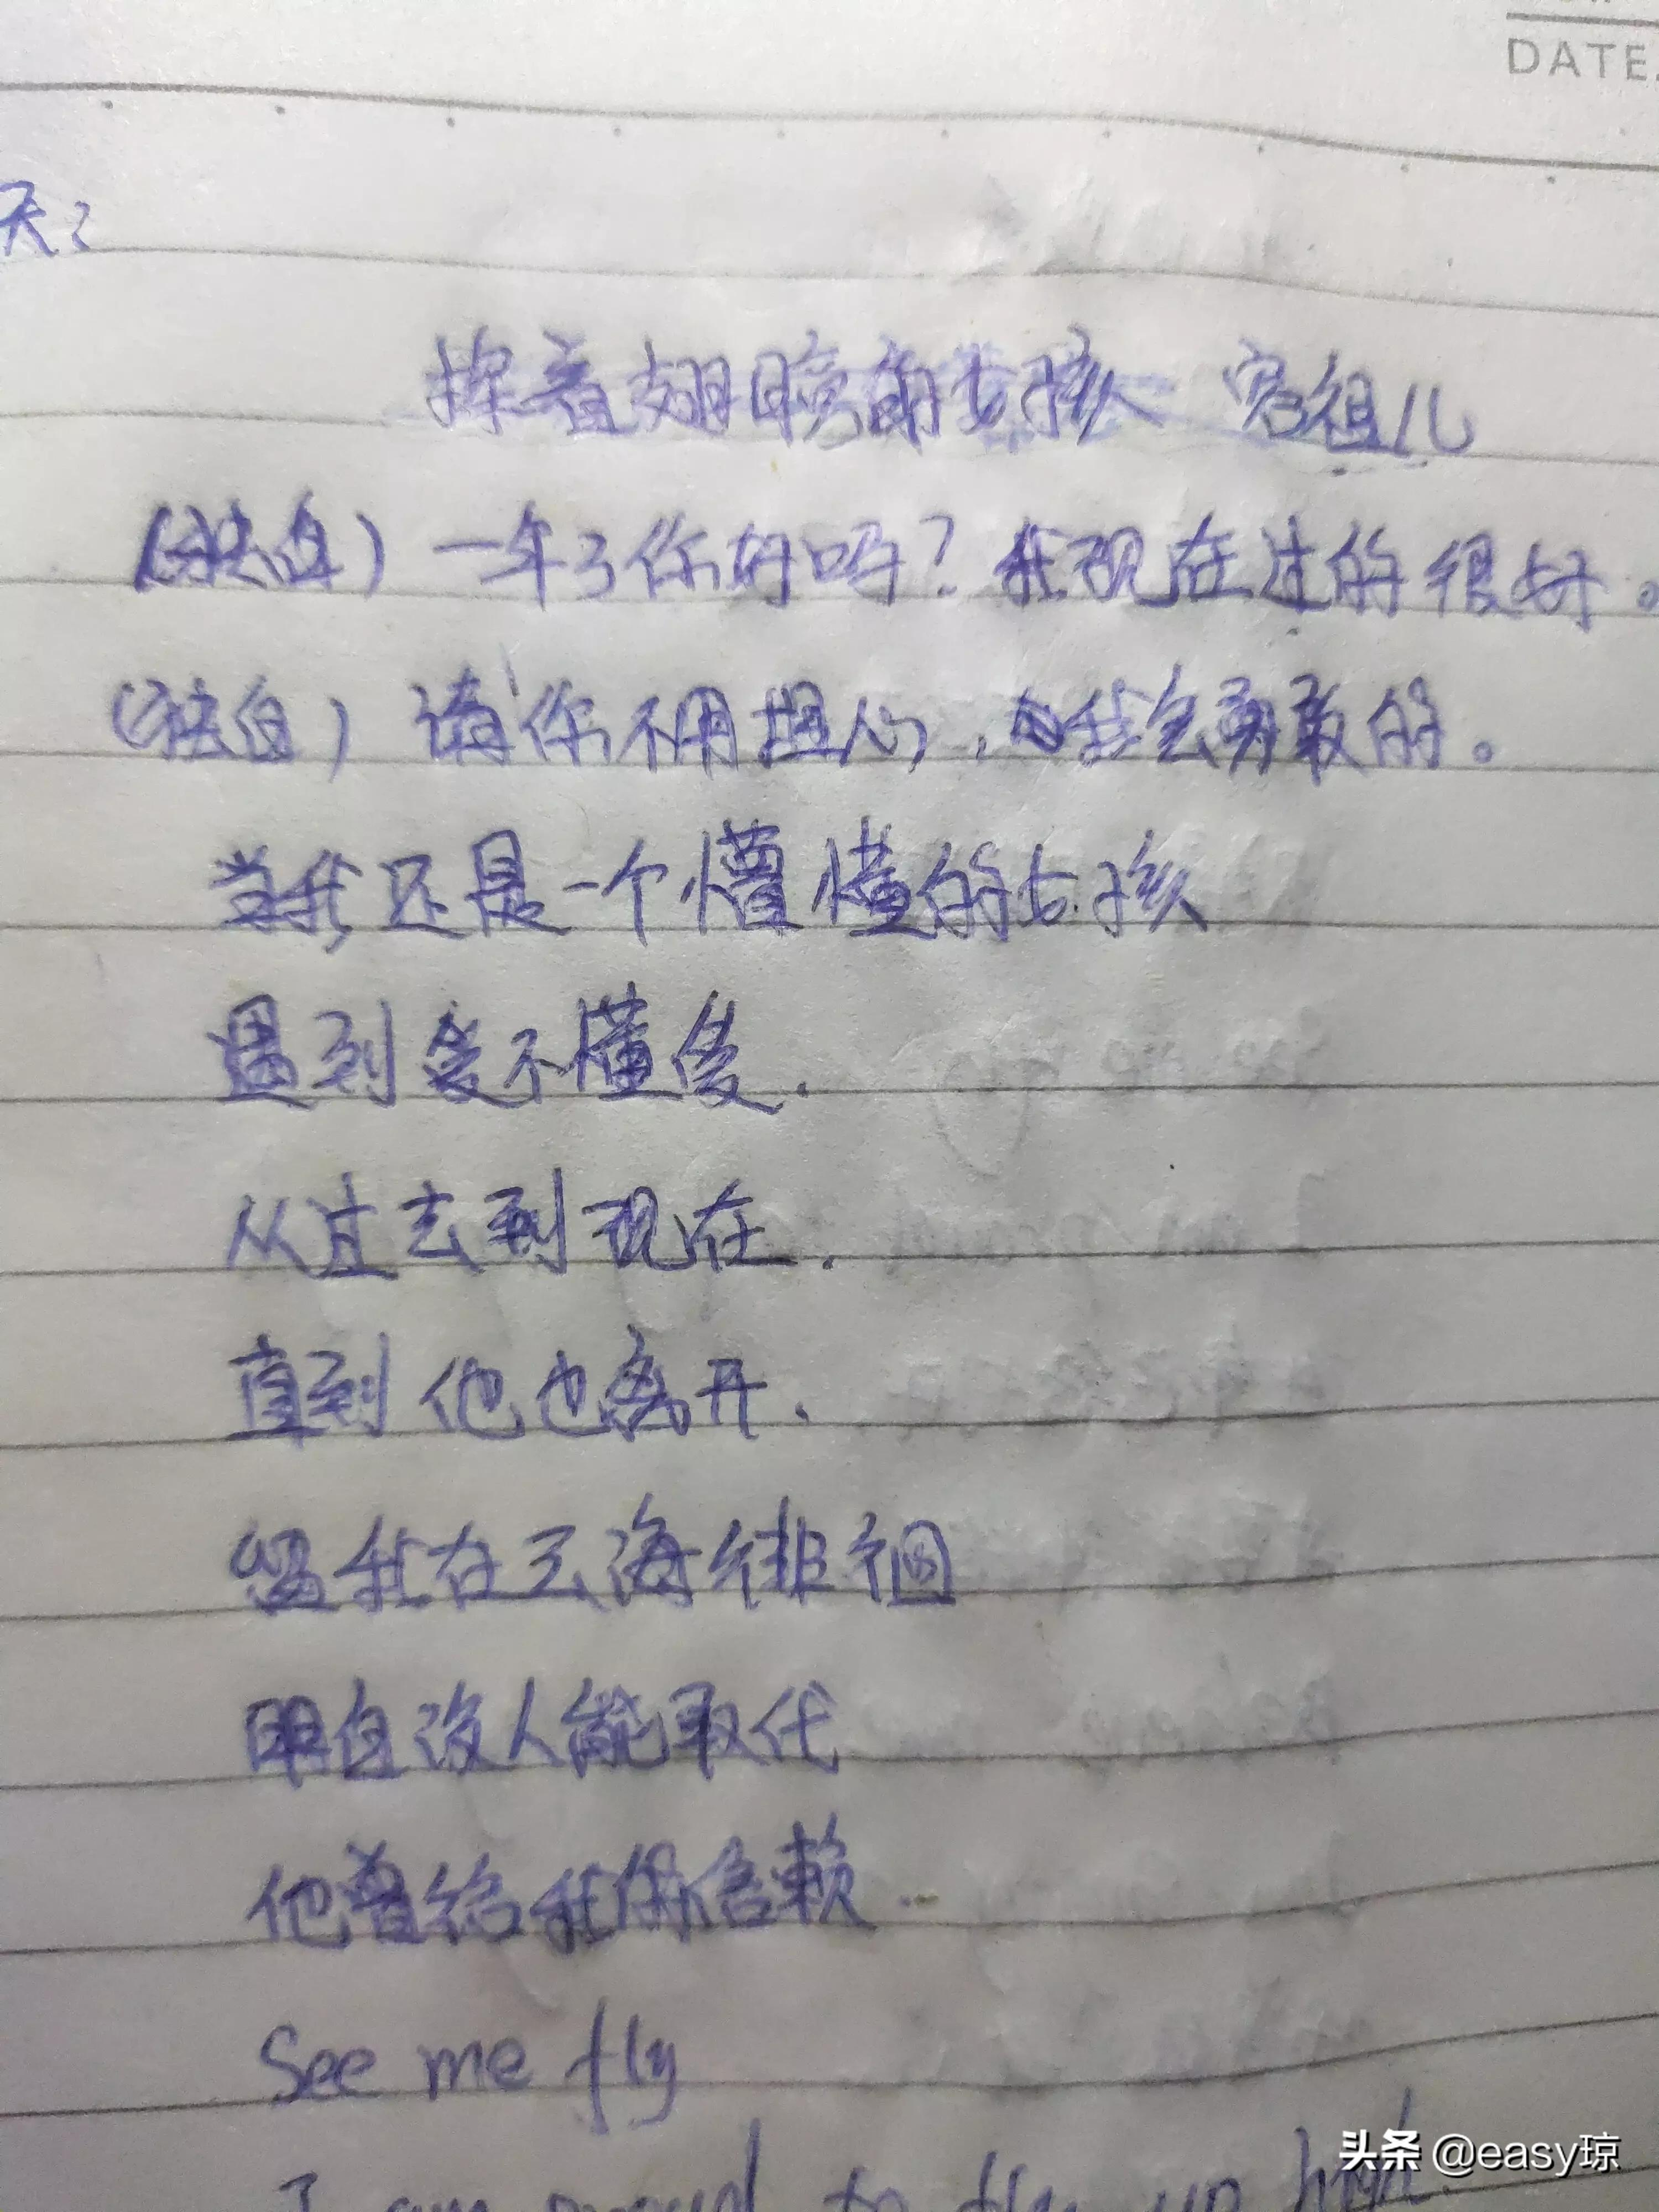 DATE.
天：
挥着翅膀的女孩 容祖儿
(独白) 一年了你好吗？我现在过的很好。
(独白) 请你不用担心，我会勇敢的。
当我还是一个懵懂的女孩
遇到爱不懂爱.
从过去到现在.
直到他也离开.
留我在云海徘徊
明白没人能取代
他曾给我的信赖
See me fly
I am proud to fly up high
头条 @easy琼